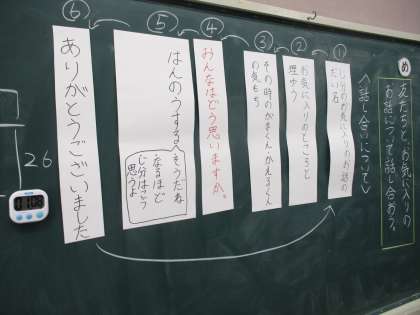 め
友だちと、お気に入りの
お話について話し合おう。
〈話し合いについて〉
①
のお気に入りのお話の
だい名
②
お気に入りのところと
理ゆう
③
その時のがまくん・かえるくん
の気もち
④
みんなはどう思いますか。
⑤
はんのうする
そうだね
なるほど
じ分はこう
思うよ
⑥
ありがとうございました
26